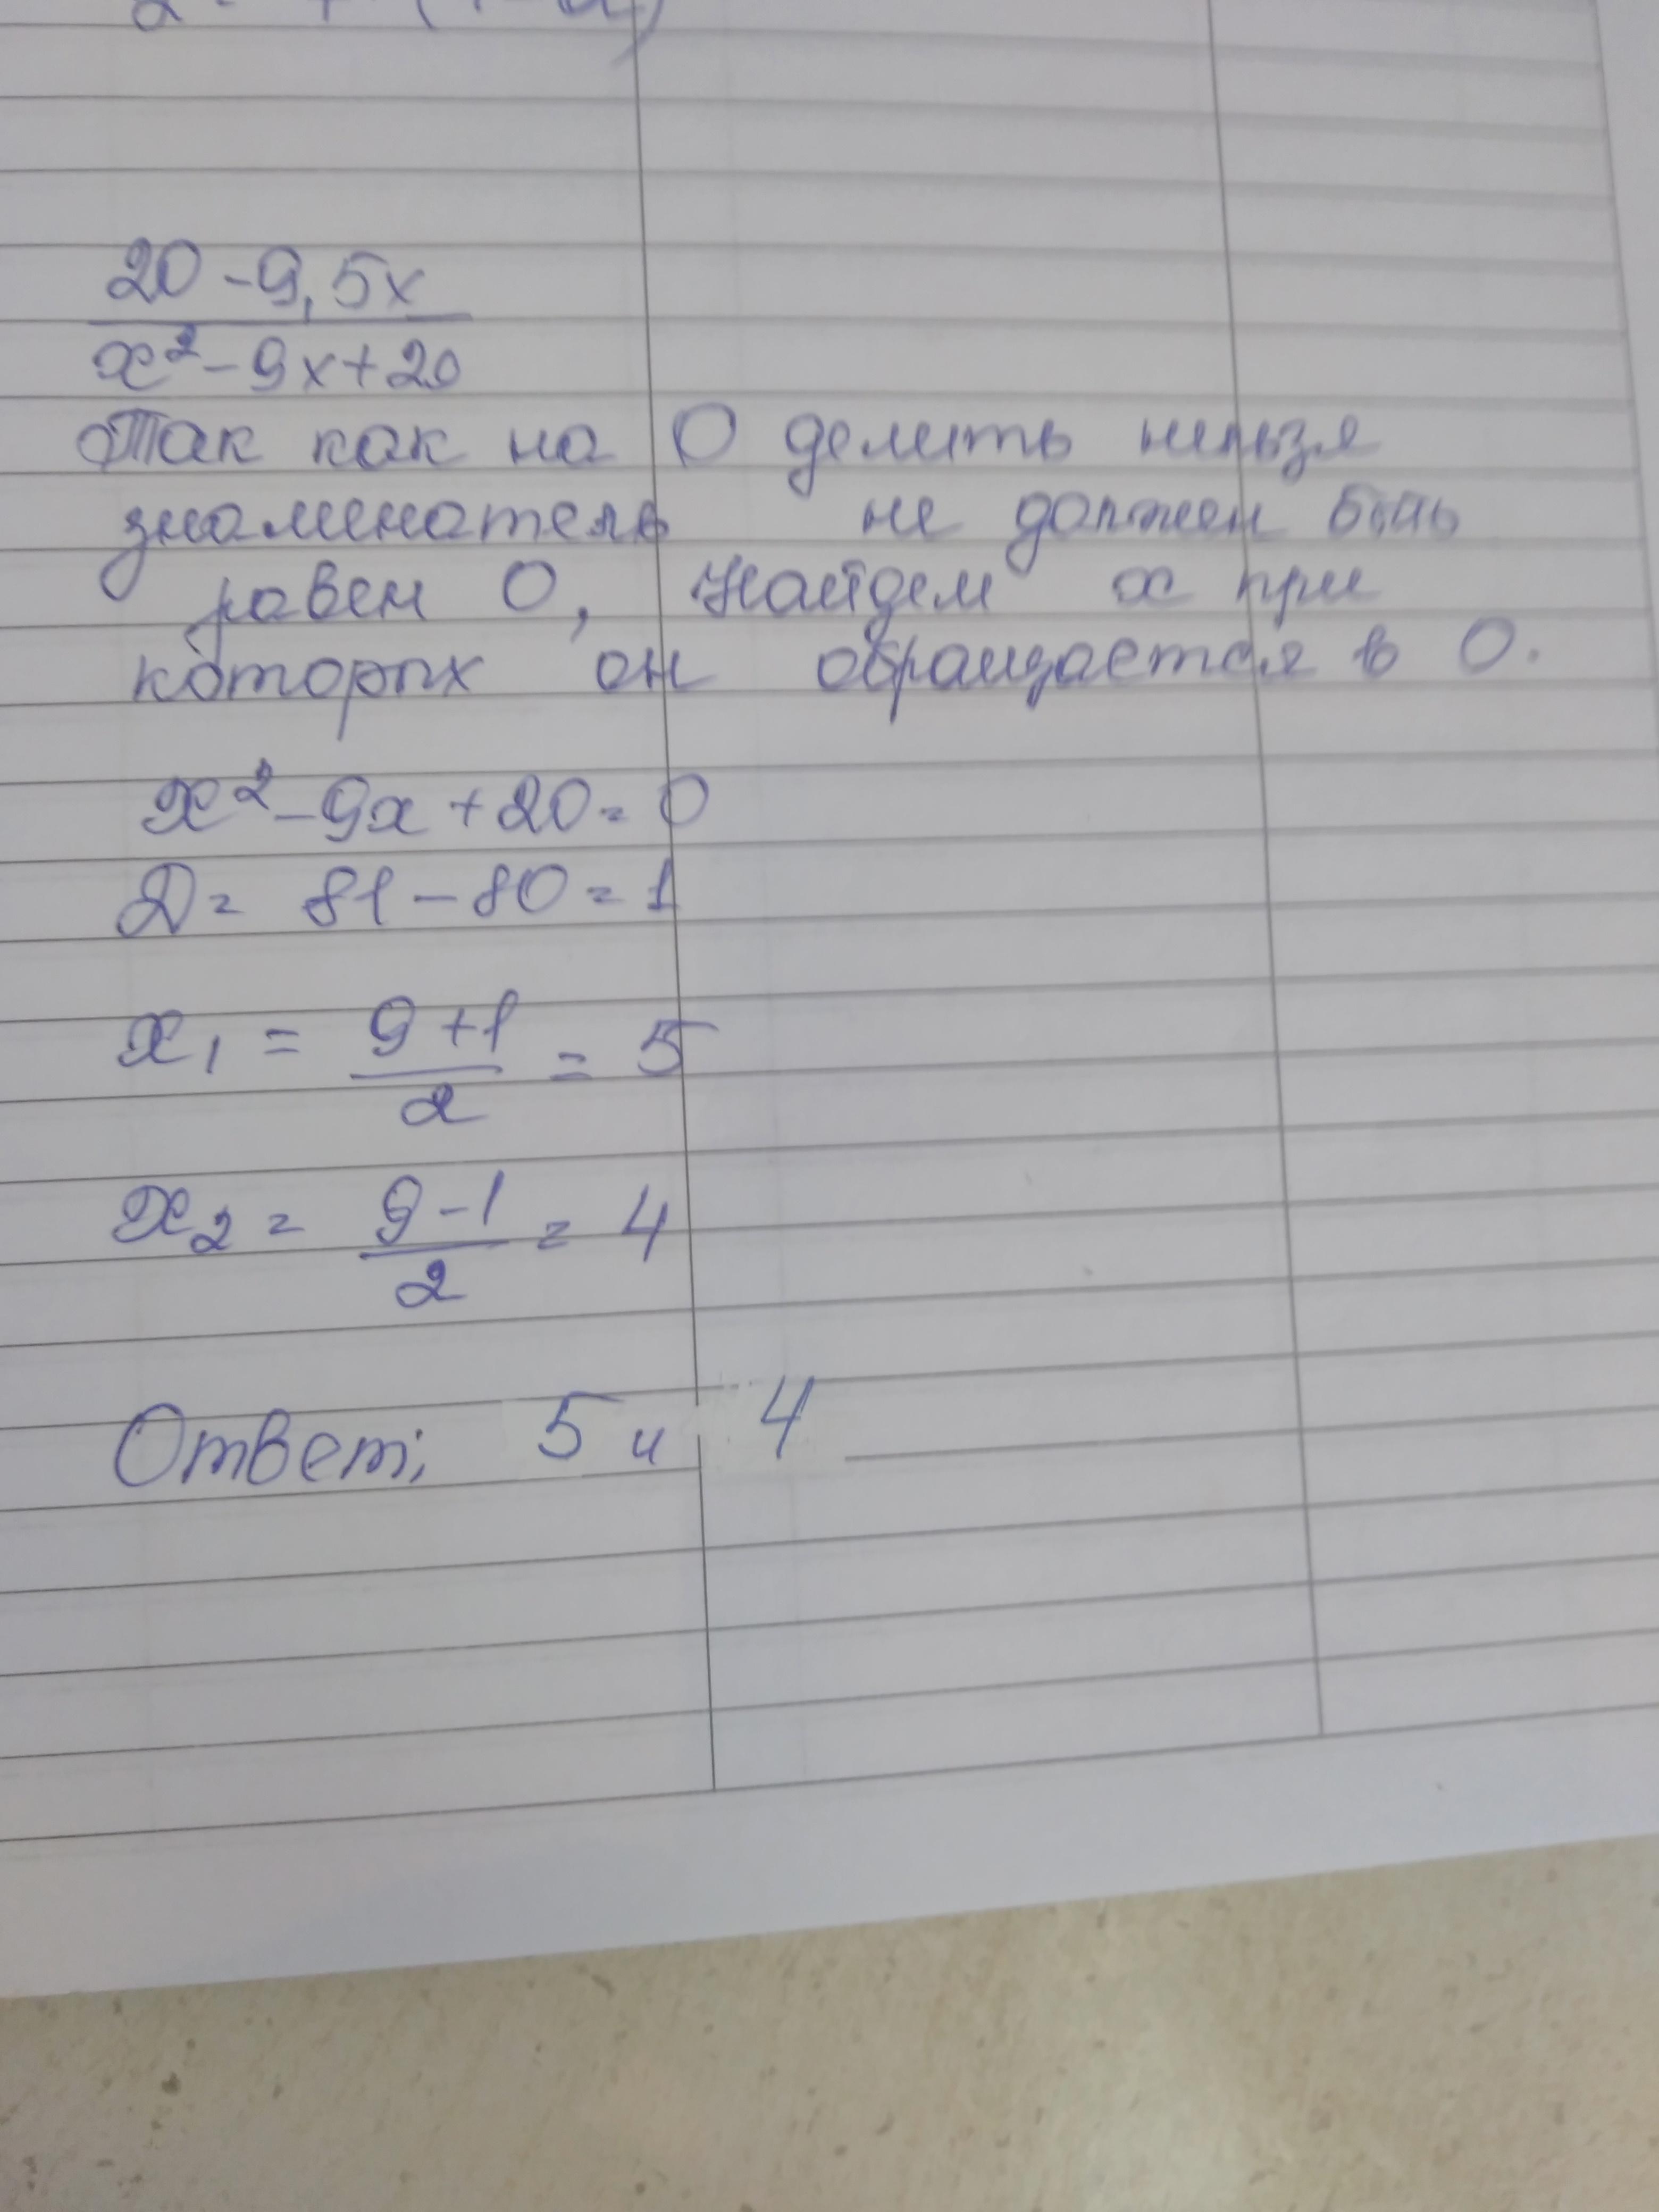 20 - 9,5x
x² - 9x + 20
Так как на 0 делить нельзя
знаменатель не должен быть
равен 0, найдем x при
которых он обращается в 0.
x² - 9x + 20 = 0
D = 81 - 80 = 1
x₁ = (9 + 1)/2 = 5
x₂ = (9 - 1)/2 = 4
Ответ: 5 и 4